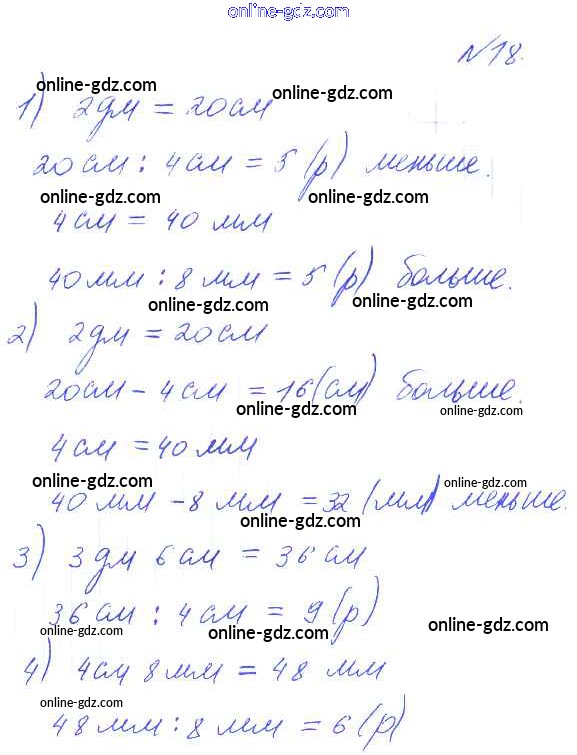 online-gdz.com
№18.
online-gdz.com online-gdz.com
1) 2дм = 20см
online-gdz.com
20см : 4см = 5 (р) меньше.
online-gdz.com online-gdz.com
4см = 40 мм
40мм : 8 мм = 5 (р) больше.
online-gdz.com online-gdz.com
2) 2дм = 20см
20см - 4см = 16(см) больше.
online-gdz.com online-gdz.com
4см = 40мм
online-gdz.com online-gdz.com
40 мм - 8 мм = 32 (мм) меньше.
online-gdz.com
3) 3 дм 6 см = 36 см
36см : 4см = 9 (р)
online-gdz.com online-gdz.com online-gdz.com
4) 4см 8мм = 48 мм
online-gdz.com
48мм : 8 мм = 6 (р)
online-gdz.com